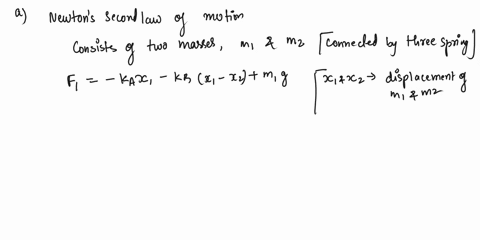 a) Newton's Second law of motion
Consists of two masses, m1 & m2 [Connected by three spring]
F1 = - kA x1 - kB (x1 - x2) + m1 g [x1 & x2 → displacement of
m1 & m2